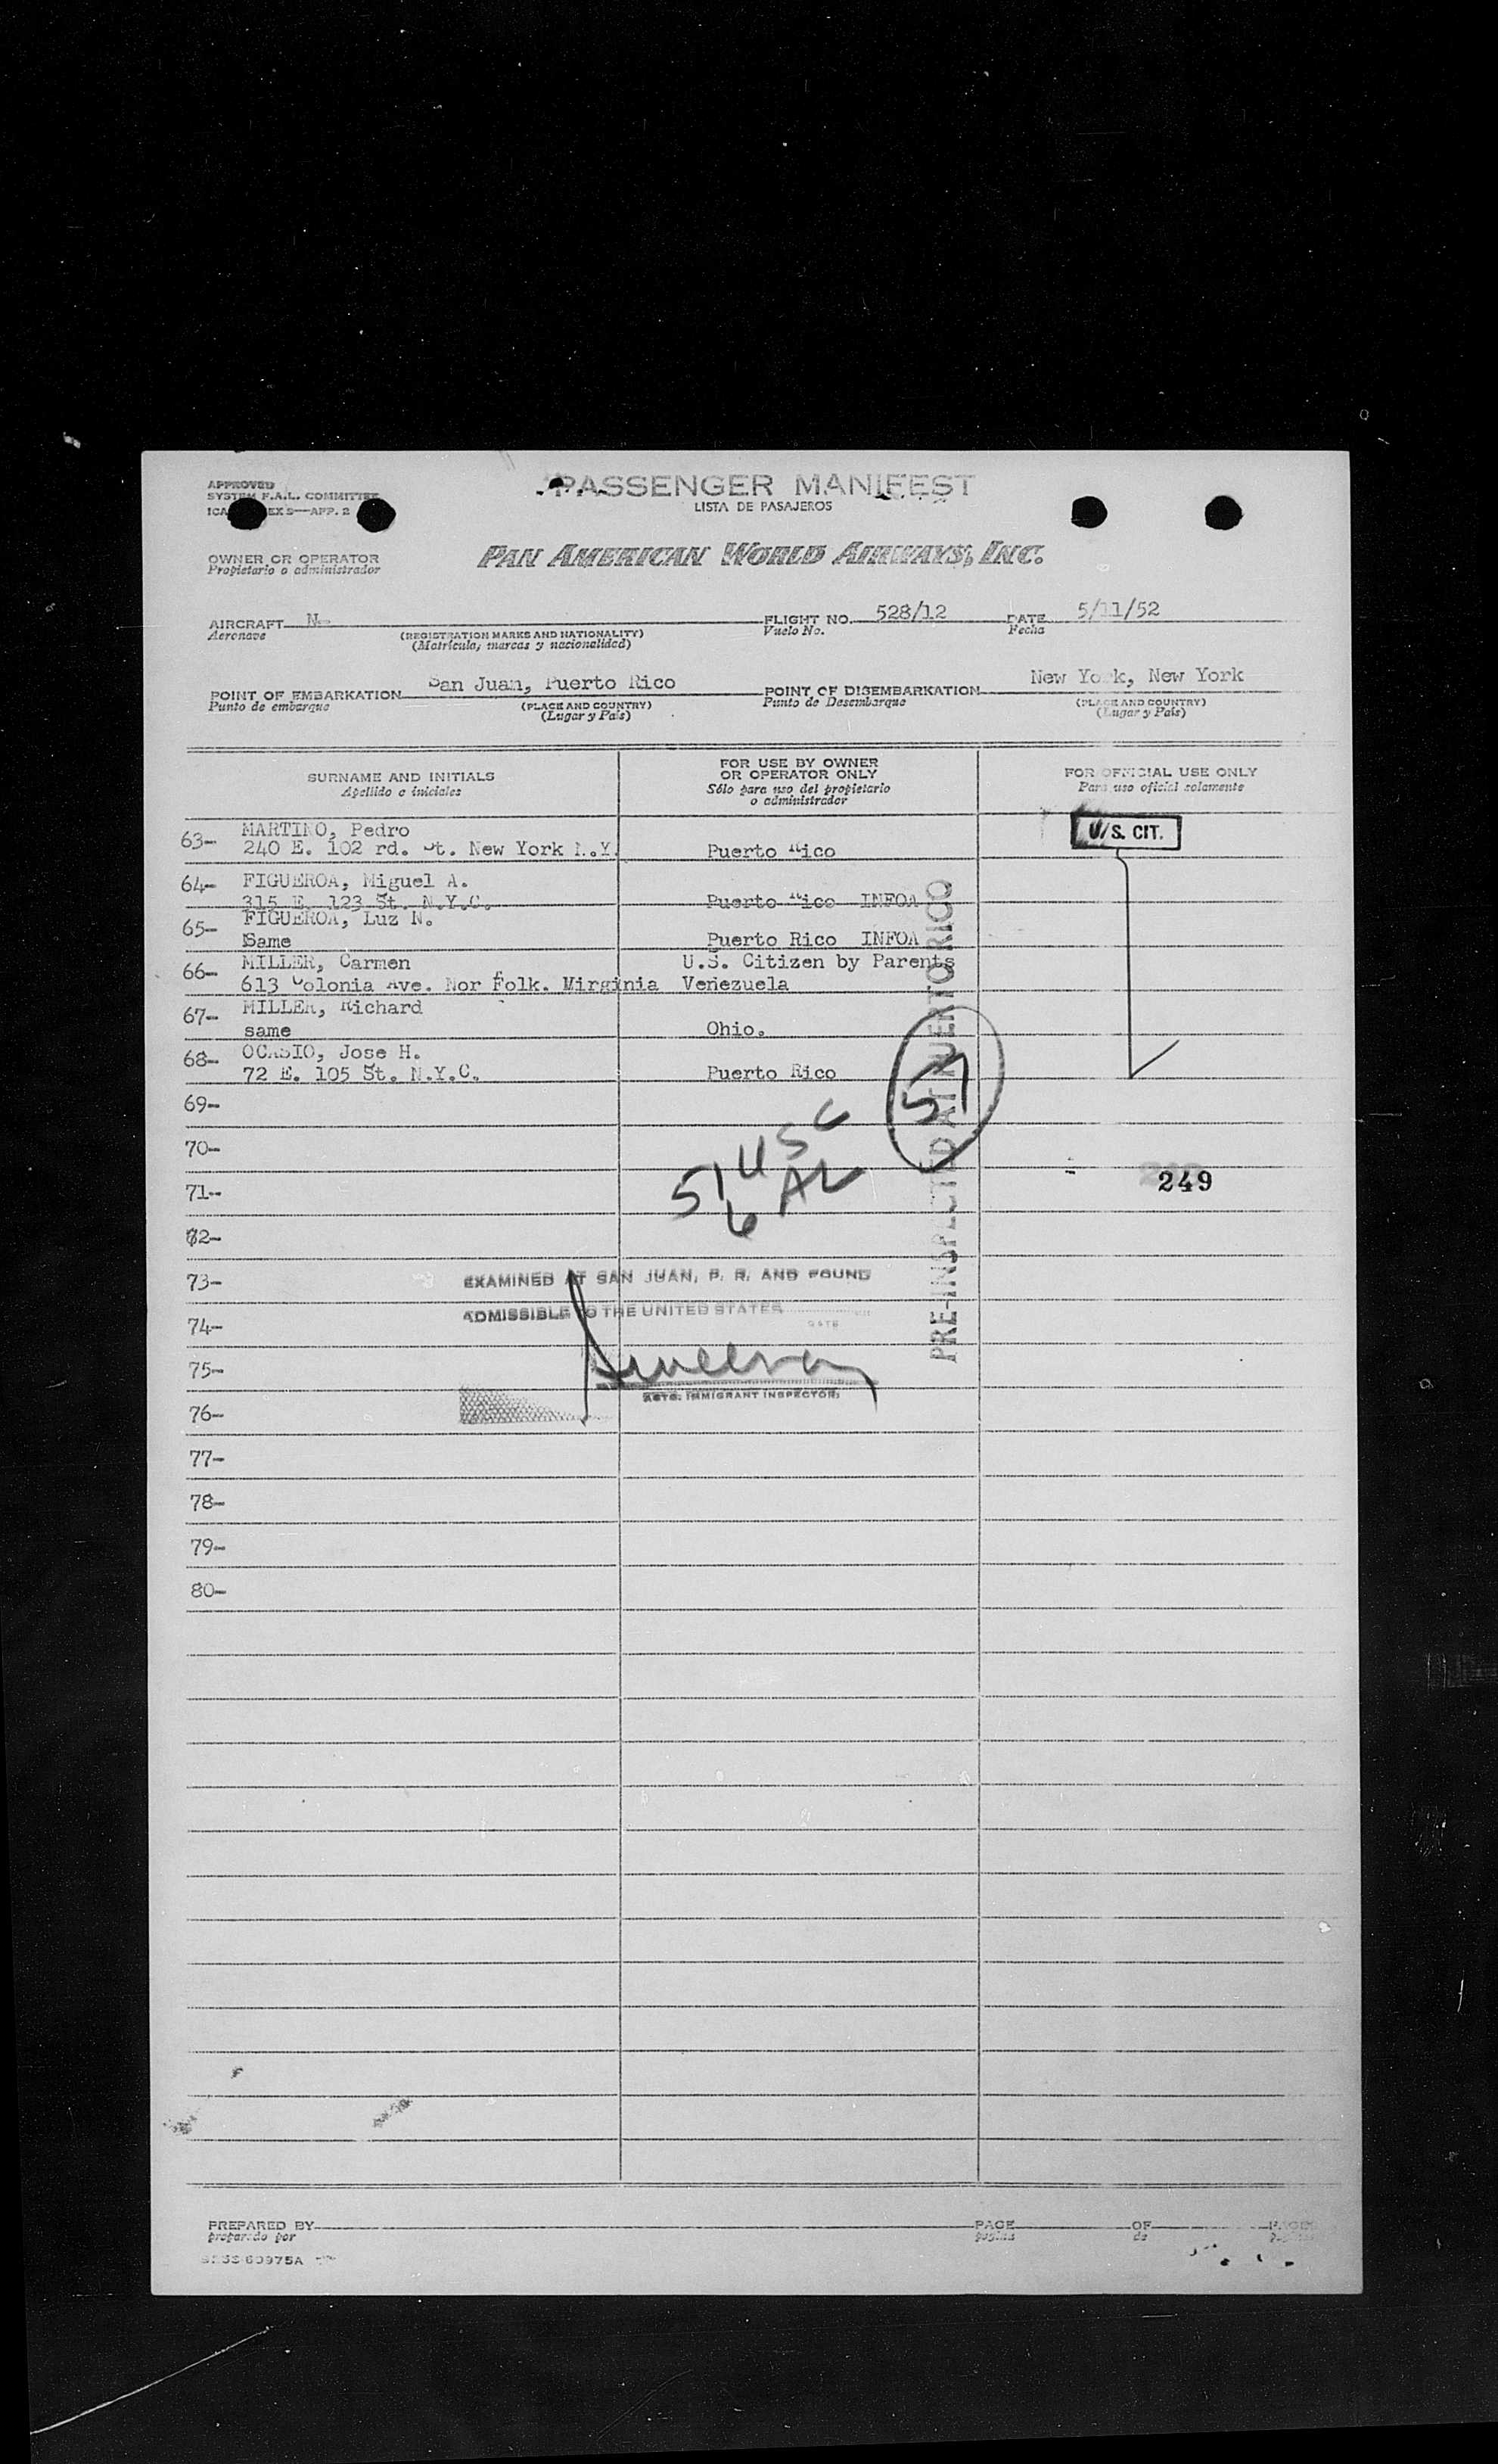 APPROVED
SYSTEM F.A.L. COMMITTEE
EX 9—APP. 2
PASSENGER MANIFEST
LISTA DE PASAJEROS
OWNER OR OPERATOR
Propietario o administrador
PAN AMERICAN WORLD AIRWAYS, INC.
AIRCRAFT N-
Aeronave
(REGISTRATION MARKS AND NATIONALITY)
(Matricula, marcas y nacionalidad)
FLIGHT NO. 528/12
Vuelo No.
DATE 5/11/52
Fecha
POINT OF EMBARKATION San Juan, Puerto Rico
Punto de embarque
(PLACE AND COUNTRY)
(Lugar y País)
POINT OF DISEMBARKATION New York, New York
Punto de Desembarque
(PLACE AND COUNTRY)
(Lugar y País)
SURNAME AND INITIALS
Apellido e iniciales
FOR USE BY OWNER
OR OPERATOR ONLY
Sólo para uso del propietario
o administrador
FOR OFFICIAL USE ONLY
Para uso oficial solamente
63- MARTINO, Pedro
240 E. 102 rd. St. New York N.Y. Puerto Rico
U/S. CIT.
64- FIGUEROA, Miguel A.
315 E. 123 St. N.Y.C. Puerto Rico INFOA
65- FIGUEROA, Luz N.
Same Puerto Rico INFOA
66- MILLER, Carmen U.S. Citizen by Parents
613 Colonia Ave. Nor Folk. Mirginia Venezuela
67- MILLER, Richard
same Ohio.
68- OCASIO, Jose H.
72 E. 105 St. N.Y.C. Puerto Rico
57
PRE-INSPECTED AT PUERTO RICO
69-
70-
51 USC
6 AL
71-
249
72-
73-
EXAMINED AT SAN JUAN, P. R. AND FOUND
ADMISSIBLE TO THE UNITED STATES
DATE
74-
75-
ACTG. IMMIGRANT INSPECTOR
76-
77-
78-
79-
80-
PREPARED BY
preparado por
PAGE
pagina
OF
de
PAGES
60975A